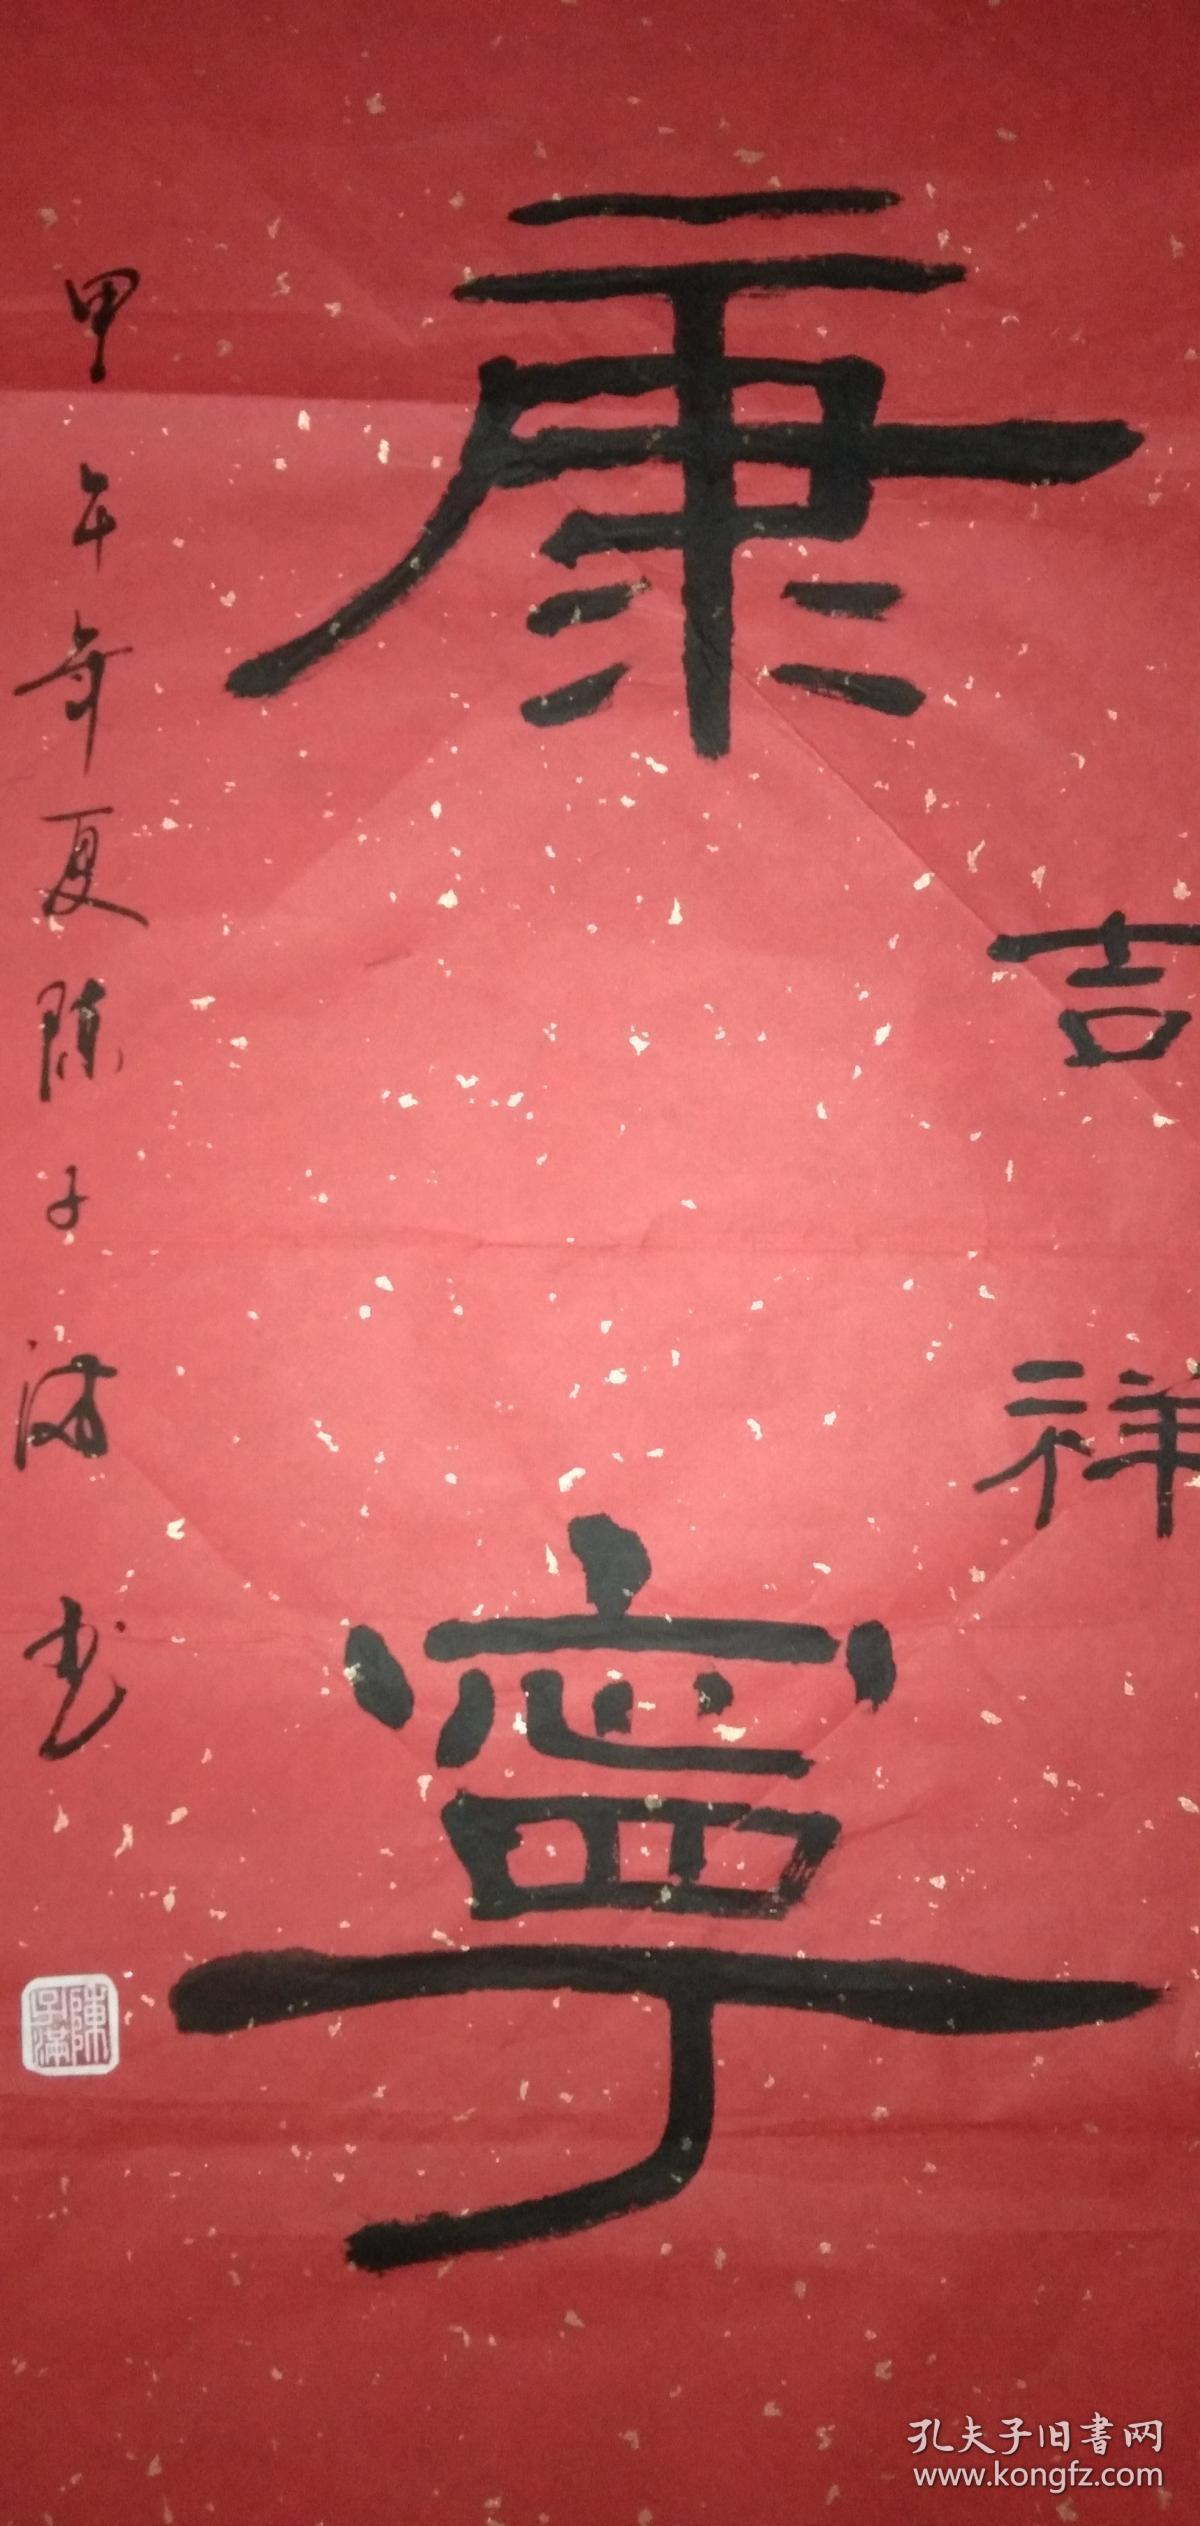 吉祥
康寧
甲午年夏陈子满书
陳子滿
孔夫子旧书网
www.kongfz.com